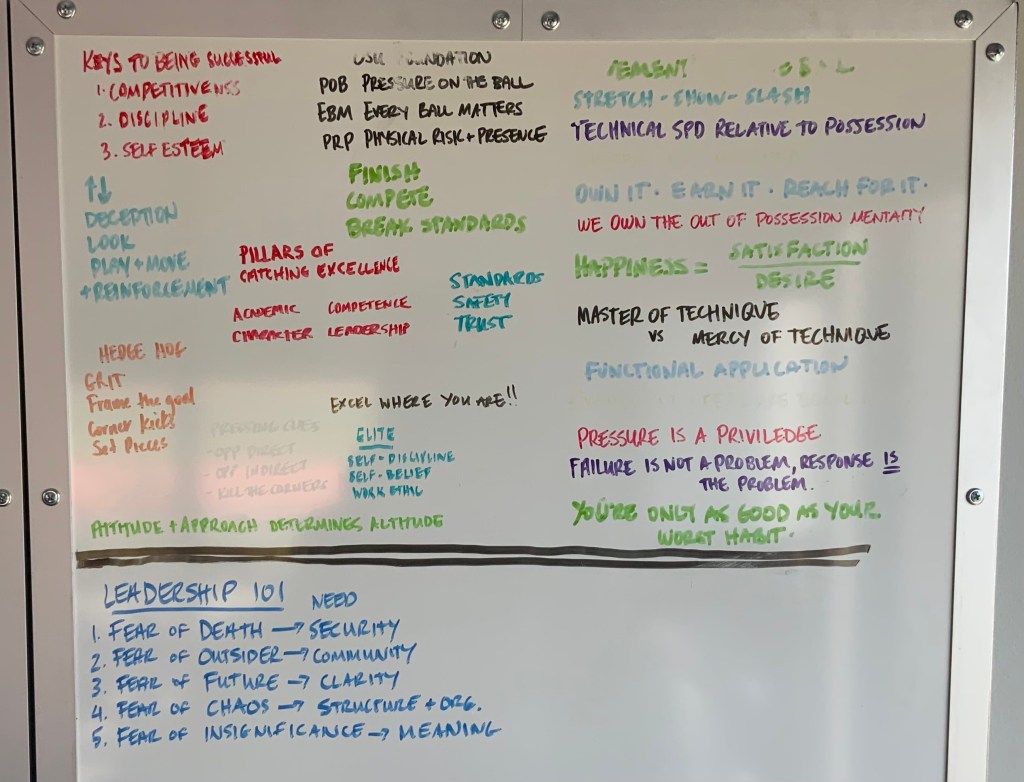 KEYS TO BEING SUCCESSFUL
1. COMPETITIVENSS
2. DISCIPLINE
3. SELF ESTEEM
↑↓
DECEPTION
LOOK
PLAY + MOVE
+ REINFORCEMENT
HEDGE HOG
GRIT
Frame the goal
Corner kicks
Set Pieces
OUR FOUNDATION
POB PRESSURE ON THE BALL
EBM EVERY BALL MATTERS
PRP PHYSICAL RISK + PRESENCE
FINISH
COMPETE
BREAK STANDARDS
PILLARS OF
CATCHING EXCELLENCE
ACADEMIC COMPETENCE
CHARACTER LEADERSHIP
STANDARDS
SAFETY
TRUST
EXCEL WHERE YOU ARE!!
PRESSING CUES
- OPP DIRECT
- OPP INDIRECT
- KILL THE CORNERS
ELITE
SELF-DISCIPLINE
SELF-BELIEF
WORK ETHIC
ATTITUDE + APPROACH DETERMINES ALTITUDE
STRETCH - SHOW - SLASH
TECHNICAL SPD RELATIVE TO POSSESSION
OWN IT · EARN IT · REACH FOR IT ·
WE OWN THE OUT OF POSSESSION MENTAITY
HAPPINESS = SATISFACTION
DESIRE
MASTER OF TECHNIQUE
VS MERCY OF TECHNIQUE
FUNCTIONAL APPLICATION
PRESSURE IS A PRIVILEDGE
FAILURE IS NOT A PROBLEM, RESPONSE IS
THE PROBLEM.
YOU'RE ONLY AS GOOD AS YOUR
WORST HABIT.
LEADERSHIP 101 NEED
1. FEAR OF DEATH → SECURITY
2. FEAR OF OUTSIDER → COMMUNITY
3. FEAR OF FUTURE → CLARITY
4. FEAR OF CHAOS → STRUCTURE + ORG.
5. FEAR OF INSIGNIFICANCE → MEANING